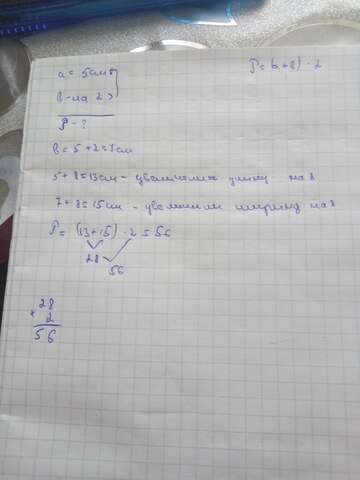 a = 5см
P=(a+b)·2
b - на 2 >
P - ?
b = 5+2=7см
5+8=13см - увеличили длину на 8
7+8=15см - увеличили ширину на 8
P= (13+15)·2=56
28
56
28
× 2
56